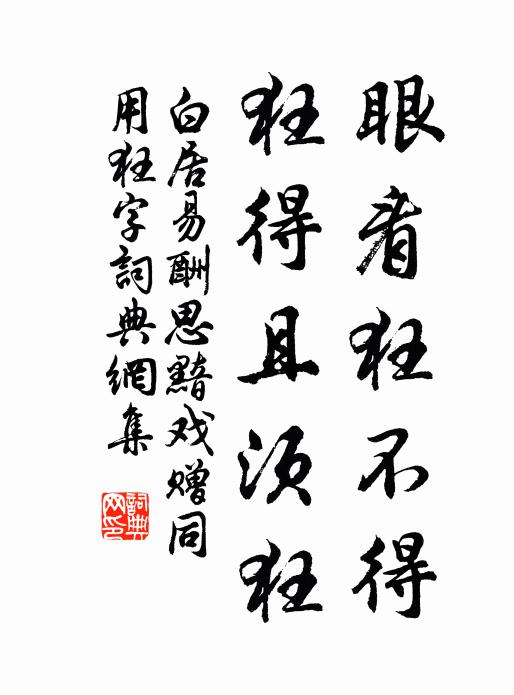 眼看狂不得
狂得且須狂
白居易酬思黯戏赠同
用狂字詞典網集
詞典
网印